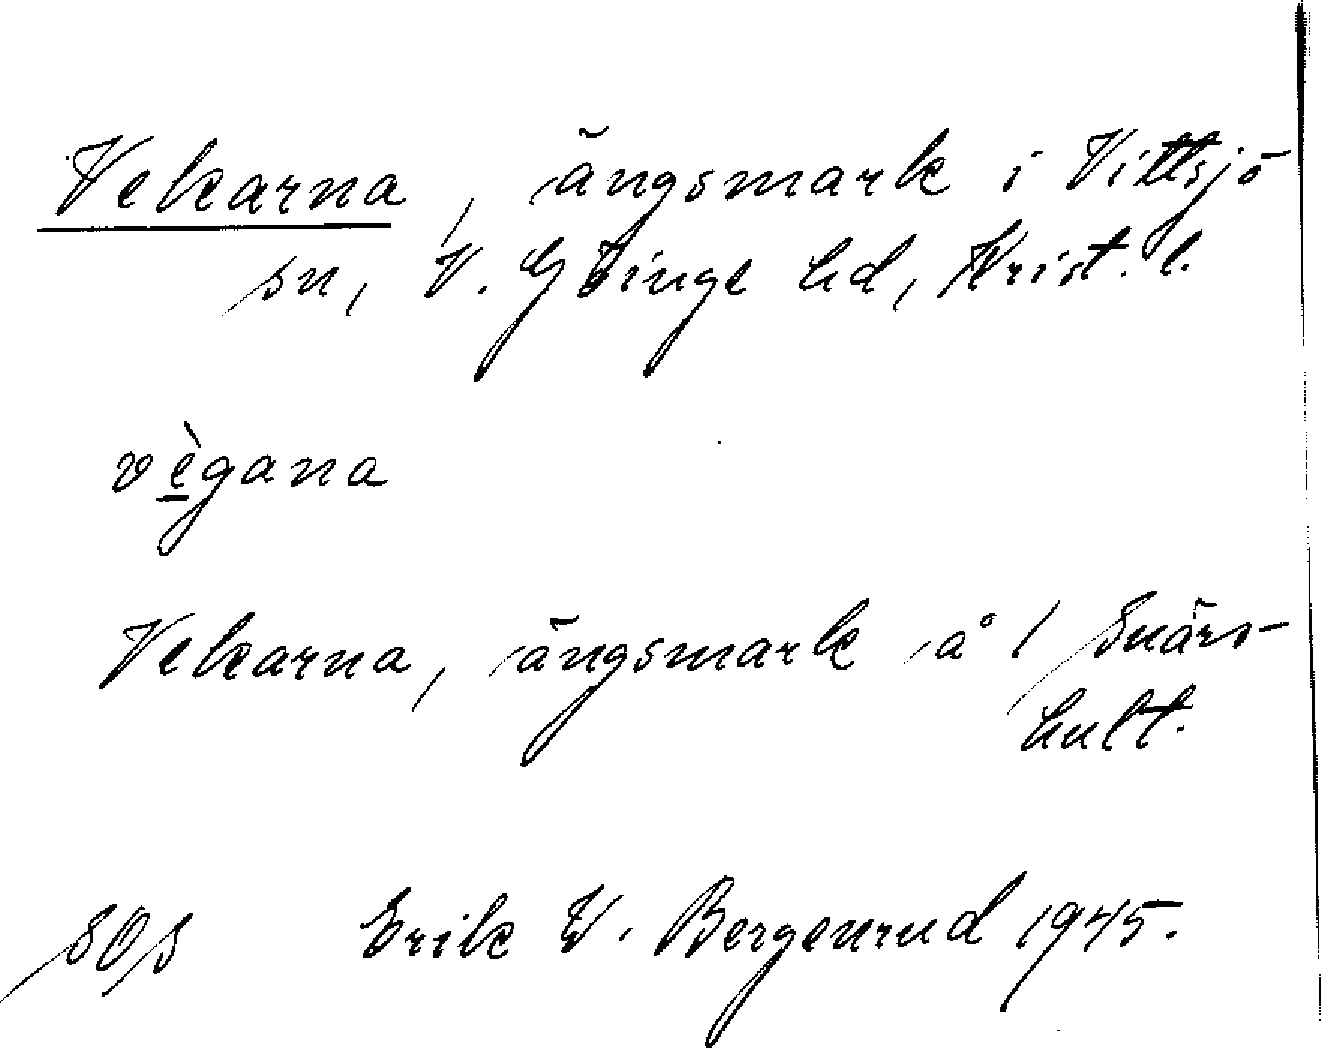 Vekarna, ängsmark i Vittsjö
sn, V. Göinge hd, Krist. l.
vègana
Vekarna, ängsmark å 1 Snärs-
hult.
SOS Erik W. Bergenrud 1945.